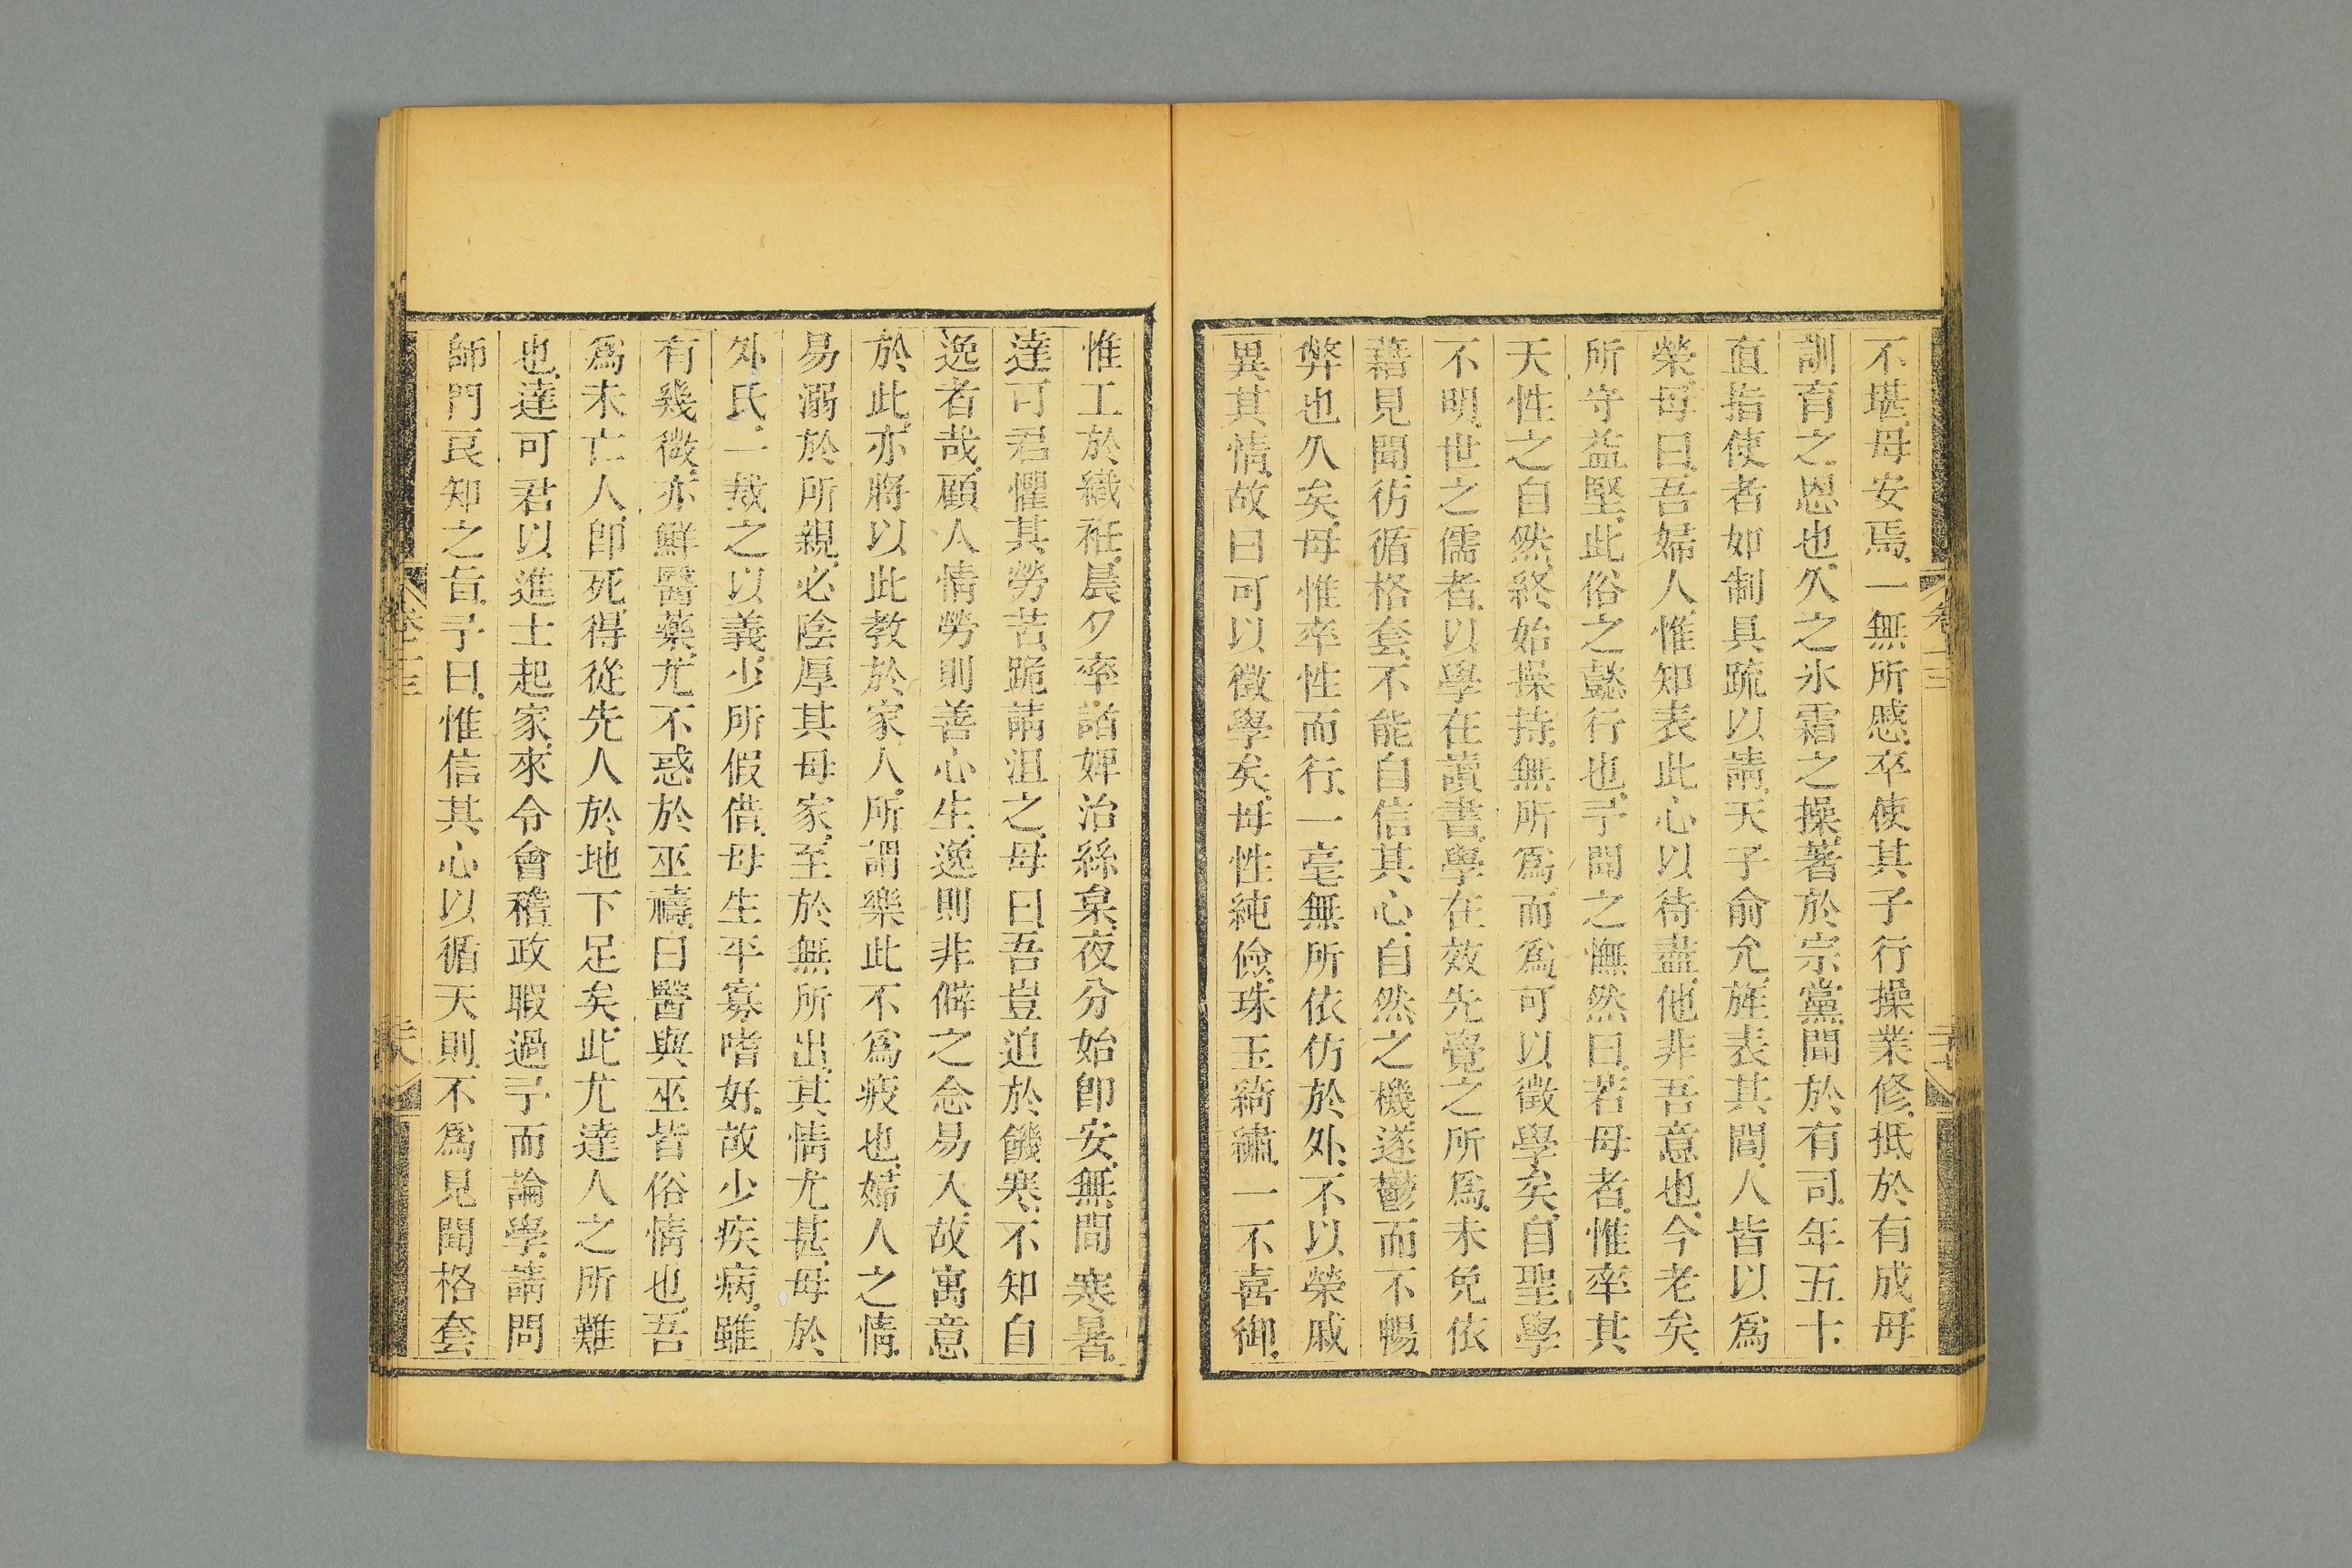 不堪母安焉一無所慼卒使其子行操業修抵於有成母
訓育之恩也久之氷霜之操著於宗黨間於有司年五十
直指使者如制具䟽以請天子俞允旌表其閭人皆以爲
榮母曰吾婦人惟知表此心以待盡他非吾意也今老矣
所守益堅此俗之懿行也予聞之憮然曰若母者惟率其
天性之自然終始操持無所爲而爲可以徵學矣自聖學
不明世之儒者以學在讀書學在效先覺之所爲未免依
藉見聞彷循格套不能自信其心自然之機遂鬱而不暢
弊也久矣母惟率性而行一毫無所依仿於外不以榮戚
異其情故曰可以徵學矣母性純儉珠玉綺繡一不喜御
惟工於織袵晨夕率諸婢治絲枲夜分始卽安無間寒暑
達可君懼其勞苦跪請沮之母曰吾豈迫於饑寒不知自
逸者哉顧人情勞則善心生逸則非僻之念易入故寓意
於此亦將以此教於家人所謂樂此不爲疲也婦人之情
易溺於所親必陰厚其母家至於無所出其情尤甚母於
外氏一裁之以義少所假借母生平寡嗜好故少疾病雖
有幾微亦鮮醫藥尤不惑於巫禱曰醫與巫皆俗情也吾
爲未亡人卽死得從先人於地下足矣此尤達人之所難
也達可君以進士起家來令會稽政暇過予而論學請問
師門良知之旨予曰惟信其心以循天則不爲見聞格套